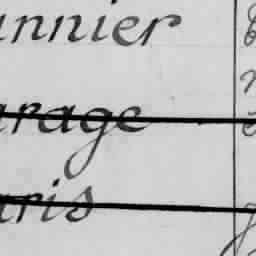 nnier
arage
aris